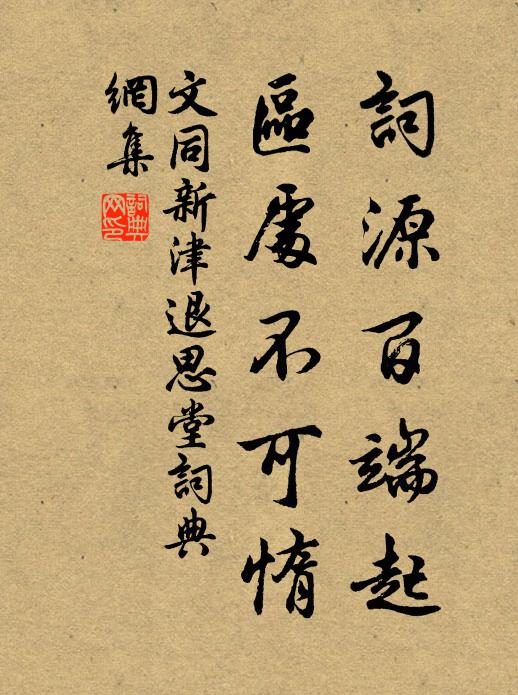 詞源百端起
區處不可惰
文同新津退思堂詞典
網集
詞典
网印